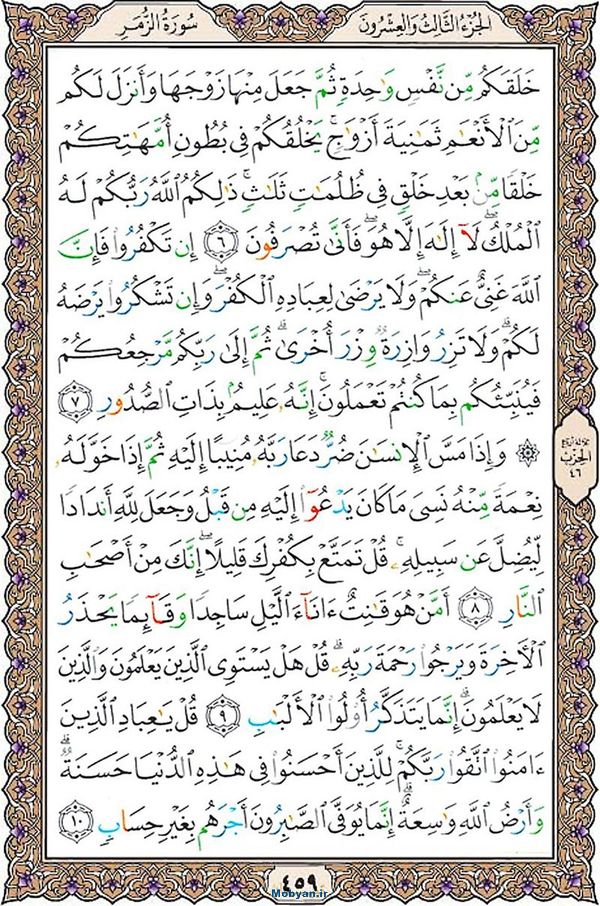 الجُزْءُ الثَّالِثُ وَالعِشْرُونَ
سُورَةُ الزُّمَرِ
خَلَقَكُم مِّن نَّفْسٍ وَٰحِدَةٍ ثُمَّ جَعَلَ مِنْهَا زَوْجَهَا وَأَنزَلَ لَكُم
مِّنَ ٱلْأَنْعَٰمِ ثَمَٰنِيَةَ أَزْوَٰجٍۚ يَخْلُقُكُمْ فِى بُطُونِ أُمَّهَٰتِكُمْ
خَلْقًا مِّنۢ بَعْدِ خَلْقٍ فِى ظُلُمَٰتٍ ثَلَٰثٍۚ ذَٰلِكُمُ ٱللَّهُ رَبُّكُمْ لَهُ
ٱلْمُلْكُۖ لَآ إِلَٰهَ إِلَّا هُوَۖ فَأَنَّىٰ تُصْرَفُونَ ٦ إِن تَكْفُرُوا۟ فَإِنَّ
ٱللَّهَ غَنِىٌّ عَنكُمْۖ وَلَا يَرْضَىٰ لِعِبَادِهِ ٱلْكُفْرَۖ وَإِن تَشْكُرُوا۟ يَرْضَهُ
لَكُمْۗ وَلَا تَزِرُ وَازِرَةٌ وِزْرَ أُخْرَىٰۗ ثُمَّ إِلَىٰ رَبِّكُم مَّرْجِعُكُمْ
فَيُنَبِّئُكُم بِمَا كُنتُمْ تَعْمَلُونَۚ إِنَّهُۥ عَلِيمٌۢ بِذَاتِ ٱلصُّدُورِ ٧
۞ وَإِذَا مَسَّ ٱلْإِنسَٰنَ ضُرٌّ دَعَا رَبَّهُۥ مُنِيبًا إِلَيْهِ ثُمَّ إِذَا خَوَّلَهُۥ
نِعْمَةً مِّنْهُ نَسِىَ مَا كَانَ يَدْعُوٓا۟ إِلَيْهِ مِن قَبْلُ وَجَعَلَ لِلَّهِ أَندَادًا
لِّيُضِلَّ عَن سَبِيلِهِۦۚ قُلْ تَمَتَّعْ بِكُفْرِكَ قَلِيلًاۖ إِنَّكَ مِنْ أَصْحَٰبِ
ٱلنَّارِ ٨ أَمَّنْ هُوَ قَٰنِتٌ ءَانَآءَ ٱلَّيْلِ سَاجِدًا وَقَآئِمًا يَحْذَرُ
ٱلْءَاخِرَةَ وَيَرْجُوا۟ رَحْمَةَ رَبِّهِۦۗ قُلْ هَلْ يَسْتَوِى ٱلَّذِينَ يَعْلَمُونَ وَٱلَّذِينَ
لَا يَعْلَمُونَۗ إِنَّمَا يَتَذَكَّرُ أُو۟لُوا۟ ٱلْأَلْبَٰبِ ٩ قُلْ يَٰعِبَادِ ٱلَّذِينَ
ءَامَنُوا۟ ٱتَّقُوا۟ رَبَّكُمْۚ لِلَّذِينَ أَحْسَنُوا۟ فِى هَٰذِهِ ٱلدُّنْيَا حَسَنَةٌۗ
وَأَرْضُ ٱللَّهِ وَٰسِعَةٌۗ إِنَّمَا يُوَفَّى ٱلصَّٰبِرُونَ أَجْرَهُم بِغَيْرِ حِسَابٍ ١٠
الحِزْب
٤٦
٤٥٩
Mobyan.ir